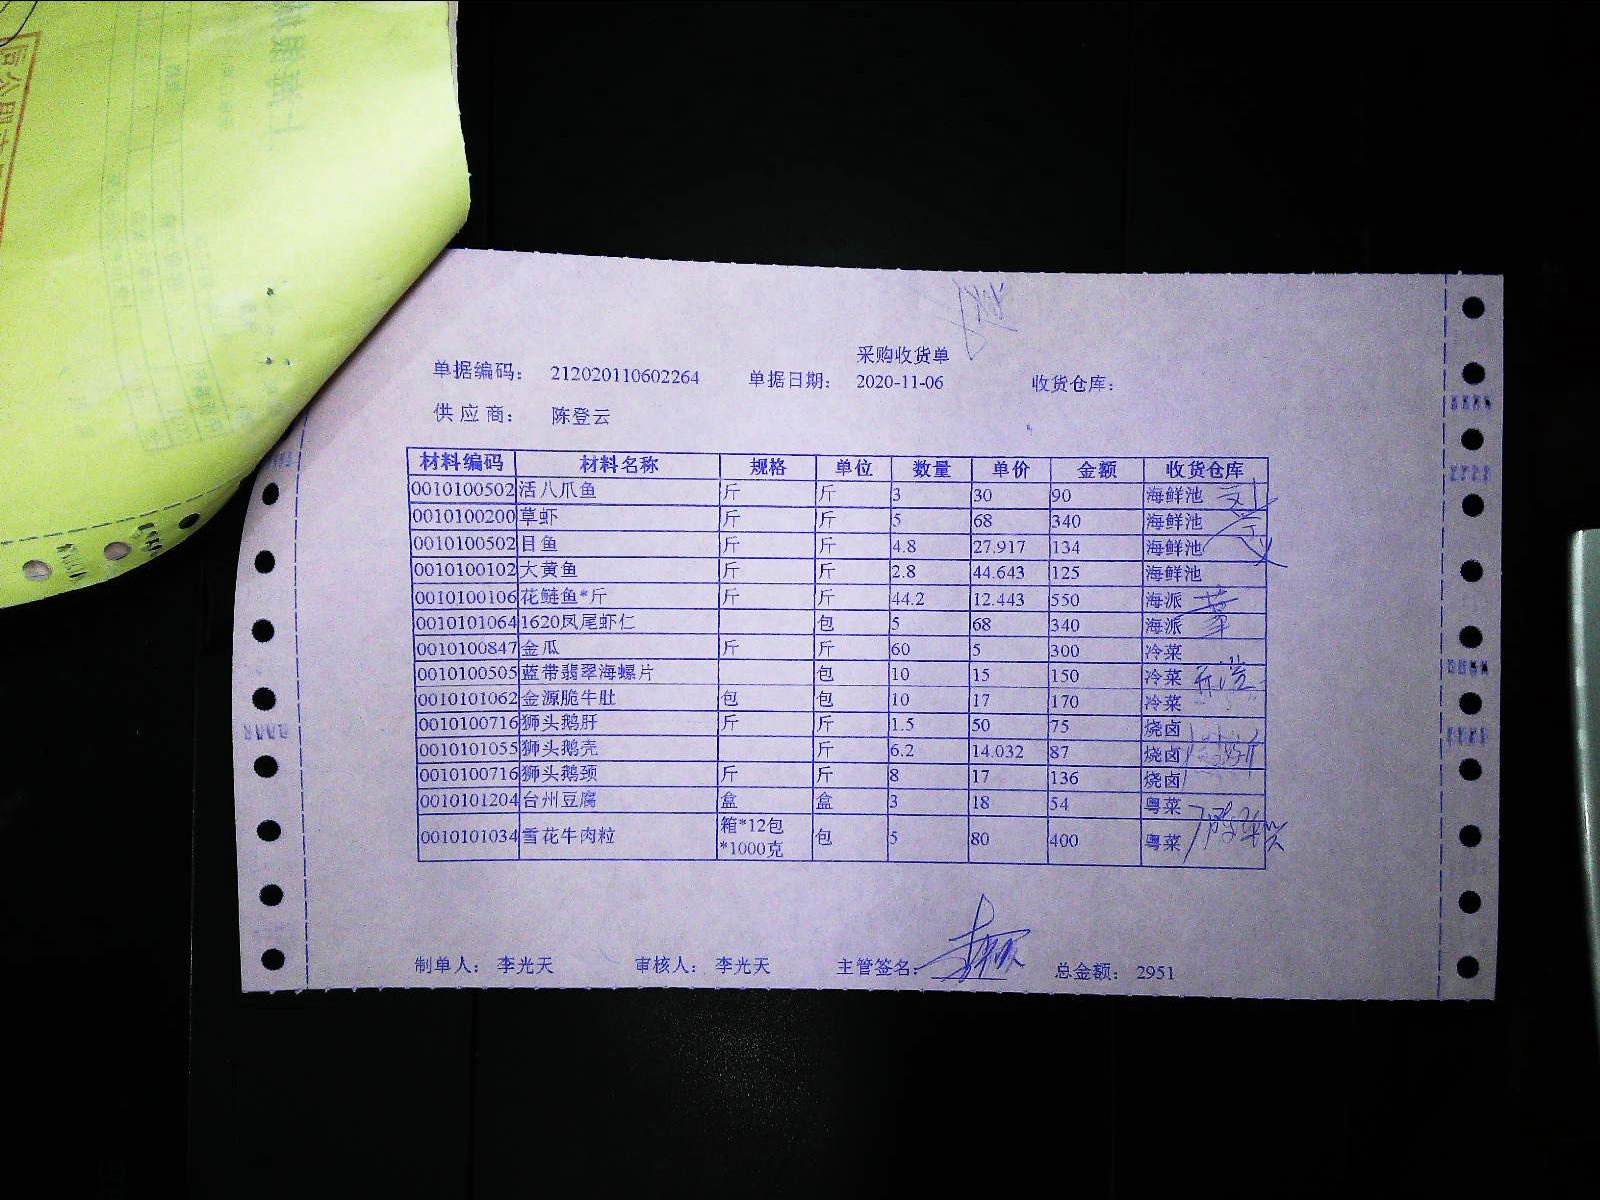 采购收货单
单据编码： 212020110602264 单据日期： 2020-11-06 收货仓库：
供应商： 陈登云
材料编码 材料名称 规格 单位 数量 单价 金额 收货仓库
0010100502 活八爪鱼 斤 斤 3 30 90 海鲜池
0010100200 草虾 斤 斤 5 68 340 海鲜池
0010100502 目鱼 斤 斤 4.8 27.917 134 海鲜池
0010100102 大黄鱼 斤 斤 2.8 44.643 125 海鲜池
0010100106 花鲢鱼*斤 斤 斤 44.2 12.443 550 海派
0010101064 1620凤尾虾仁 包 5 68 340 海派
0010100847 金瓜 斤 斤 60 5 300 冷菜
0010100505 蓝带翡翠海螺片 包 10 15 150 冷菜
0010101062 金源脆牛肚 包 包 10 17 170 冷菜
0010100716 狮头鹅肝 斤 斤 1.5 50 75 烧卤
0010101055 狮头鹅壳 斤 6.2 14.032 87 烧卤
0010100716 狮头鹅颈 斤 斤 8 17 136 烧卤
0010101204 台州豆腐 盒 盒 3 18 54 粤菜
0010101034 雪花牛肉粒 箱*12包*1000克 包 5 80 400 粤菜
制单人： 李光天 审核人： 李光天 主管签名： 总金额： 2951